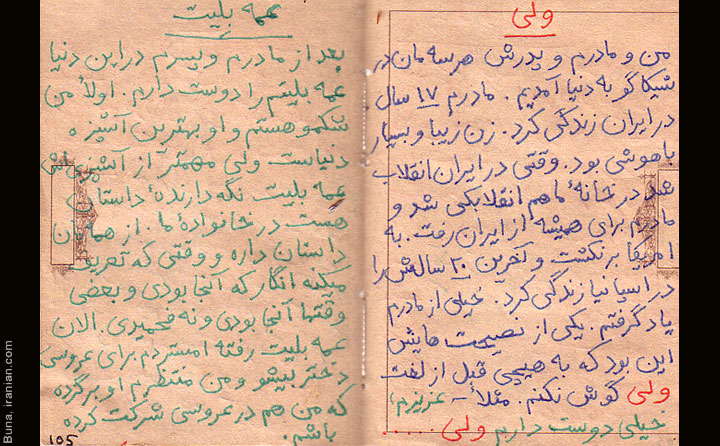 ولی
من و مادرم و پدرش هرسه مان در
شیکاگو به دنیا آمدیم. مادرم ۱۷ سال
در ایران زندگی کرد. زن زیبا و بسیار
باهوشی بود. وقتی در ایران انقلاب
شد در خانهٔ ما هم انقلابکی شد و
مادرم برای همیشه از ایران رفت. به
امریکا برنگشت و آخرین ۲۰ سالش را
در اسپانیا زندگی کرد. خیلی از مادرم
یاد گرفتم. یکی از نصیحت هایش
این بود که به هیچی قبل از لغت
ولی گوش نکنم. مثلاً - عزیزم،
خیلی دوست دارم ولی .....
عمه بلیت
بعد از مادرم و پسرم در این دنیا
عمه بلیتم را دوست دارم. اولاً من
شکمو هستم و او بهترین آشپزه
دنیاست ولی مهمتر از آشپزی ش
عمه بلیت نگه دارندهٔ داستان
هست در خانوادهٔ ما. از همه مان
داستان داره و وقتی که تعریف
میکنه انگار که آنجا بودی و بعضی
وقتها آنجا بودی و نه فحمیدی. الان
عمه بلیت رفته امستردم برای عروسی
دختر بیشو و من منتظرم او برگرده
که من هم در عروسی شرکت کرده
باشم.
105
Buna, iranian.com